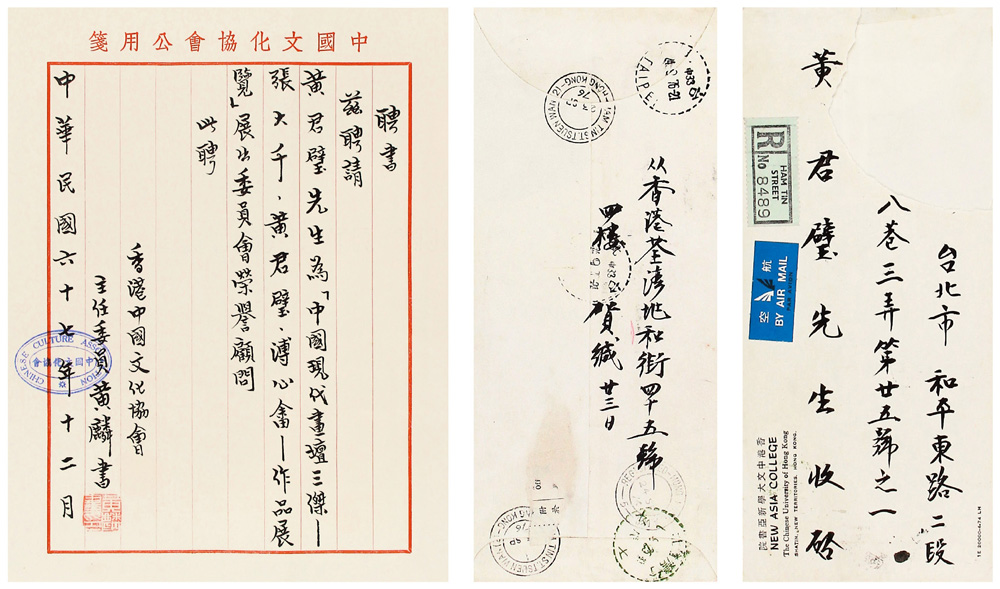 中國文化協會公用箋
聘書
茲聘請
黃君璧先生為「中國現代畫壇三傑—
張大千、黃君璧、溥心畬—作品展
覽」展出委員會榮譽顧問
此聘
香港中國文化協會
主任委員黃麟書
中華民國六十七年十二月
CHINESE CULTURE ASSOCIATION
中國文化協會
HAM TIN ST. TSUEN WAN
HONG KONG
TAIPEI
从香港荃湾地和街四十五號
四樓 賀緘 廿三日
台北市 和平東路二段
八巷三弄第廿五號之一
黃君璧先生收啟
R
HAM TIN
STREET
No 8489
航空
BY AIR MAIL
PAR AVION
香港中文大學新亞書院
NEW ASIA COLLEGE
The Chinese University of Hong Kong
SHATIN, NEW TERRITORIES, HONG KONG.